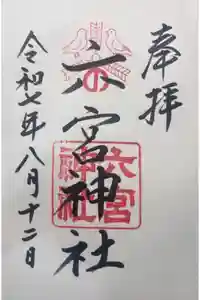 奉拝
六宮神社
六宮
神社
令和七年八月十二日